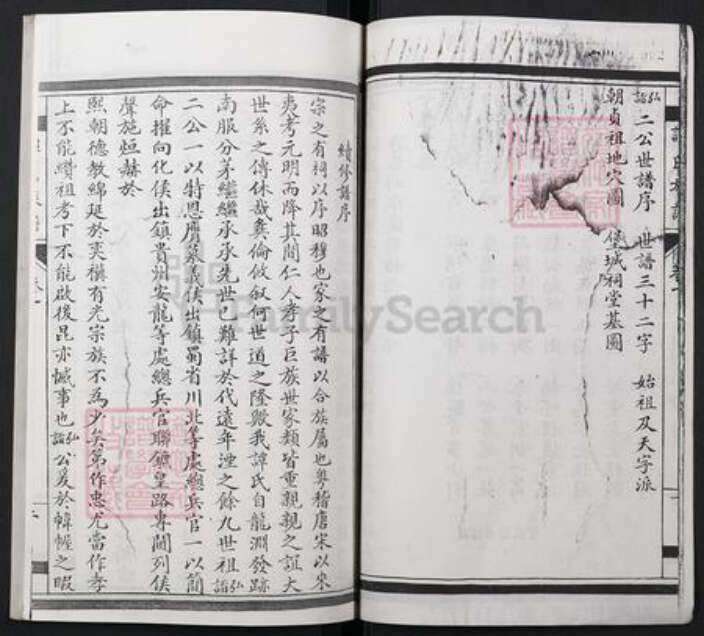 弘諮二公世譜序 世譜三十二字 始祖及天字派
朝貞祖地穴圖 堡城祠堂基圖
續修譜序
宗之有祠以序昭穆也家之有譜以合族屬也粵稽唐宋以來
夷考元明而降其間仁人孝子巨族世家類皆重親親之誼大
世系之傳休哉彝倫攸叙何世道之隆歟我譚氏自龍淵發跡
南服分茅繼繼承承先世已難詳於代遠年湮之餘九世祖弘諮
二公一以特恩膺慕義侯出鎮蜀省川北等處總兵官一以簡
命擢向化侯出鎮貴州安龍等處總兵官聯鑣皇路專閫列侯
聲施烜赫於
熙朝德教綿延於奕禩有光宗族不為少矣第作忠尤當作孝
上不能纘祖考下不能啟後昆亦憾事也弘諮公爰於幃幄之暇
FamilySearch